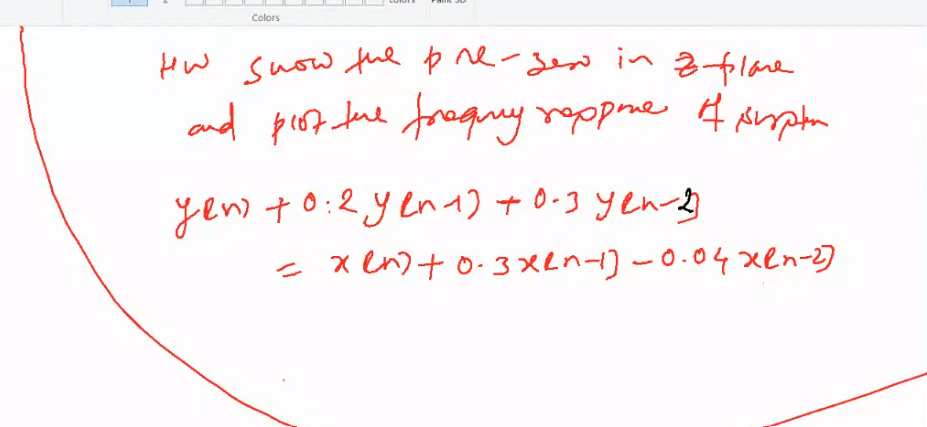 Colors
HW show the pole-zero in z-plane
and plot the frequency response of system
y(n) + 0.2 y(n-1) + 0.3 y(n-2)
= x(n) + 0.3x(n-1) - 0.04 x(n-2)